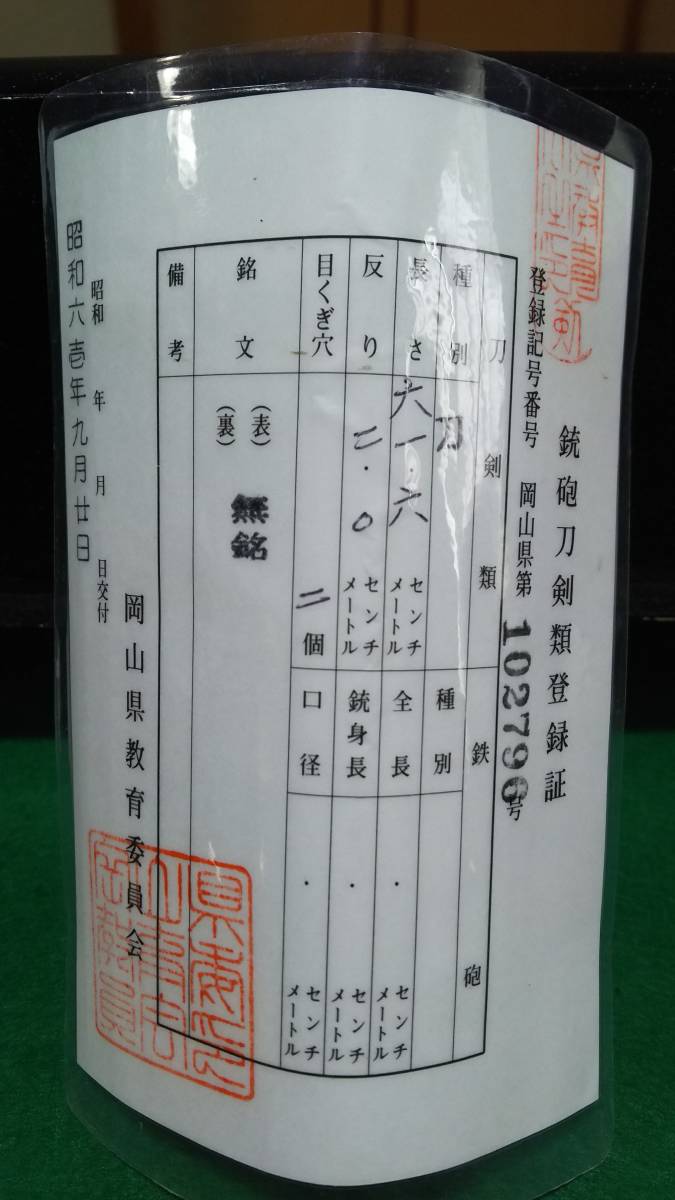 銃砲刀剣類登録証
登録記号番号 岡山県第102796号
刀剣類
種別 刀
長さ 六一.六 センチメートル
反り 二.〇 センチメートル
目くぎ穴 二個
銘文 (表) 無銘
(裏)
備考
鉄砲
種別
全長 . センチメートル
銃身長 . センチメートル
口径 . センチメートル
昭和 年 月 日交付
昭和六壱年九月廿日
岡山県教育委員会